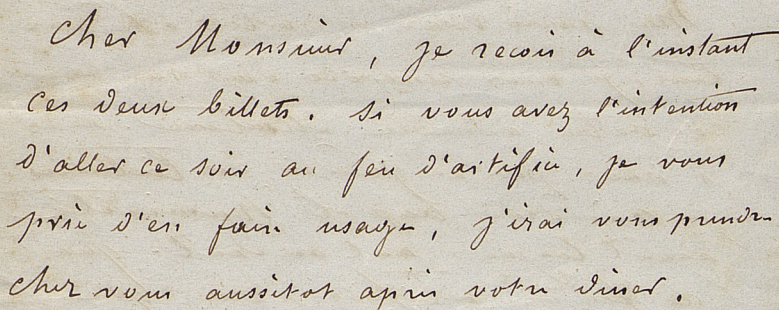 Cher Monsieur, je reçois à l'instant
ces deux billets. Si vous avez l'intention
d'aller ce soir au feu d'artifice, je vous
prie d'en faire usage, j'irai vous prendre
chez vous aussitot après votre diner.